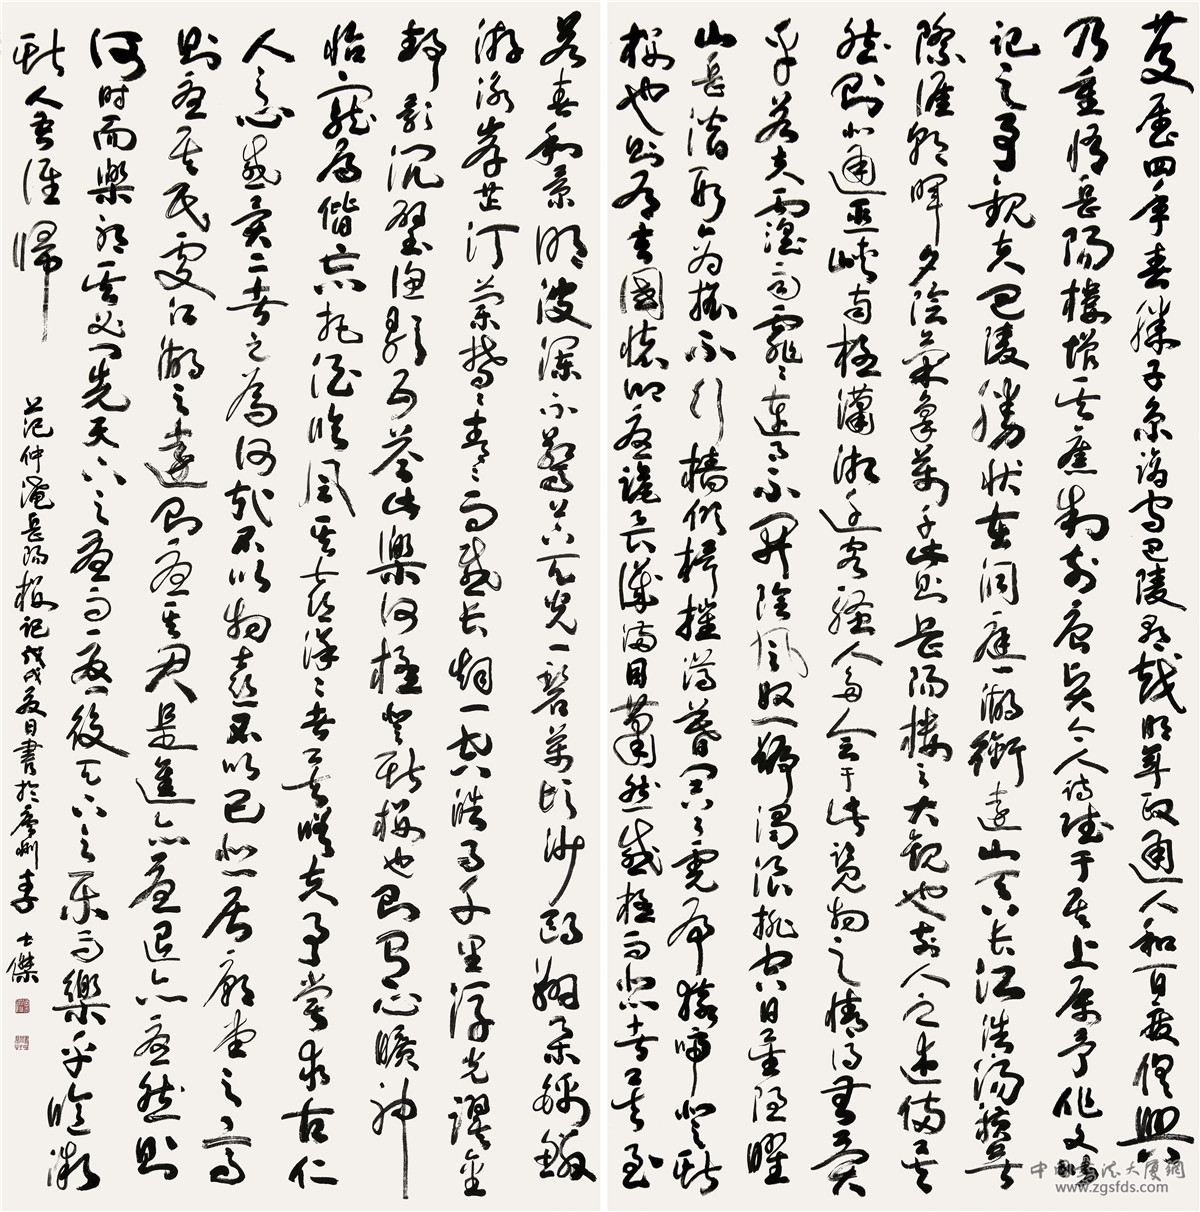 慶曆四年春滕子京謫守巴陵郡越明年政通人和百廢俱興
乃重脩岳陽樓增其舊制刻唐賢今人詩賦于其上屬予作文以
記之予觀夫巴陵勝狀在洞庭一湖銜遠山吞长江浩湯橫無
際涯朝暉夕陰氣象萬千此則岳陽樓之大觀也前人之述備矣
然則北通巫峽南極瀟湘遷客騷人多会于此覽物之情得無異
乎若夫霪雨霏霏連月不開陰風怒號濁浪排空日星隱曜
山岳潛形商旅不行檣傾楫摧薄暮冥冥虎嘯猿啼登斯
樓也則有去國懷鄉憂讒畏譏滿目蕭然感極而悲者矣至
若春和景明波瀾不驚上下天光一碧萬頃沙鷗翔集錦鱗
游泳岸芷汀蘭鬱鬱青青而或长烟一空皓月千里浮光躍金
靜影沉璧漁歌互答此樂何極登斯樓也則有心曠神
怡寵辱偕忘把酒臨風其喜洋洋者矣嗟夫予嘗求古仁
人之心或異二者之為何哉不以物喜不以己悲居廟堂之高
則憂其民處江湖之遠則憂其君是進亦憂退亦憂然則
何時而樂耶其必曰先天下之憂而憂後天下之樂而樂乎噫微
斯人吾誰歸
范仲淹岳陽樓記戊戌夏日書於廣州李士傑
中国書法大厦網
www.zgsfds.com